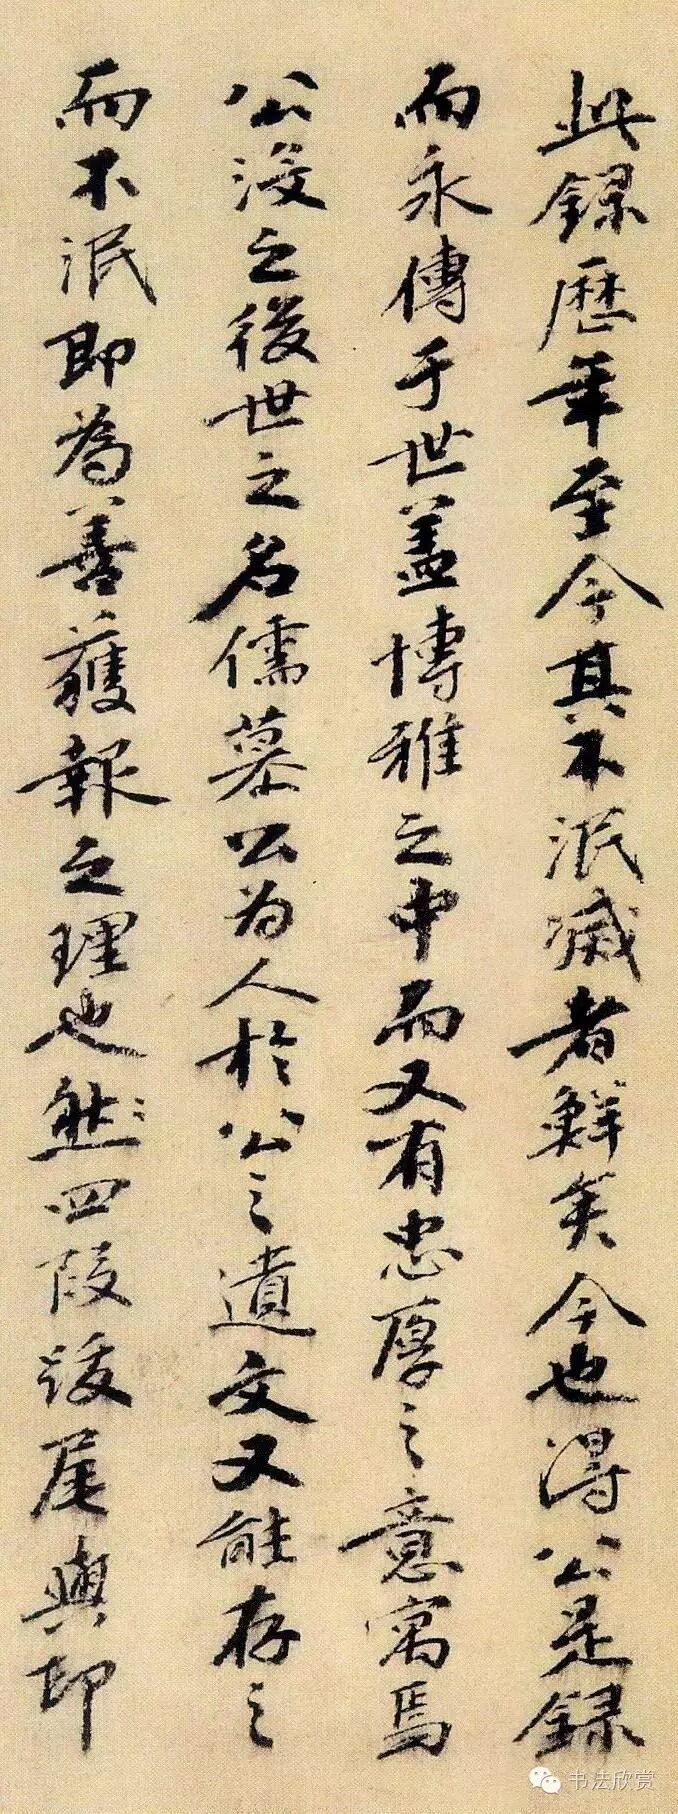 此録歴年至今其不泯滅者鮮矣今也得公是録
而永傳于世盖博雅之中而又有忠厚之意寓焉
公没之後世之名儒慕公为人於公之遺文又能存之
而不泯即為善獲報之理也然四段跋尾與印
书法欣赏